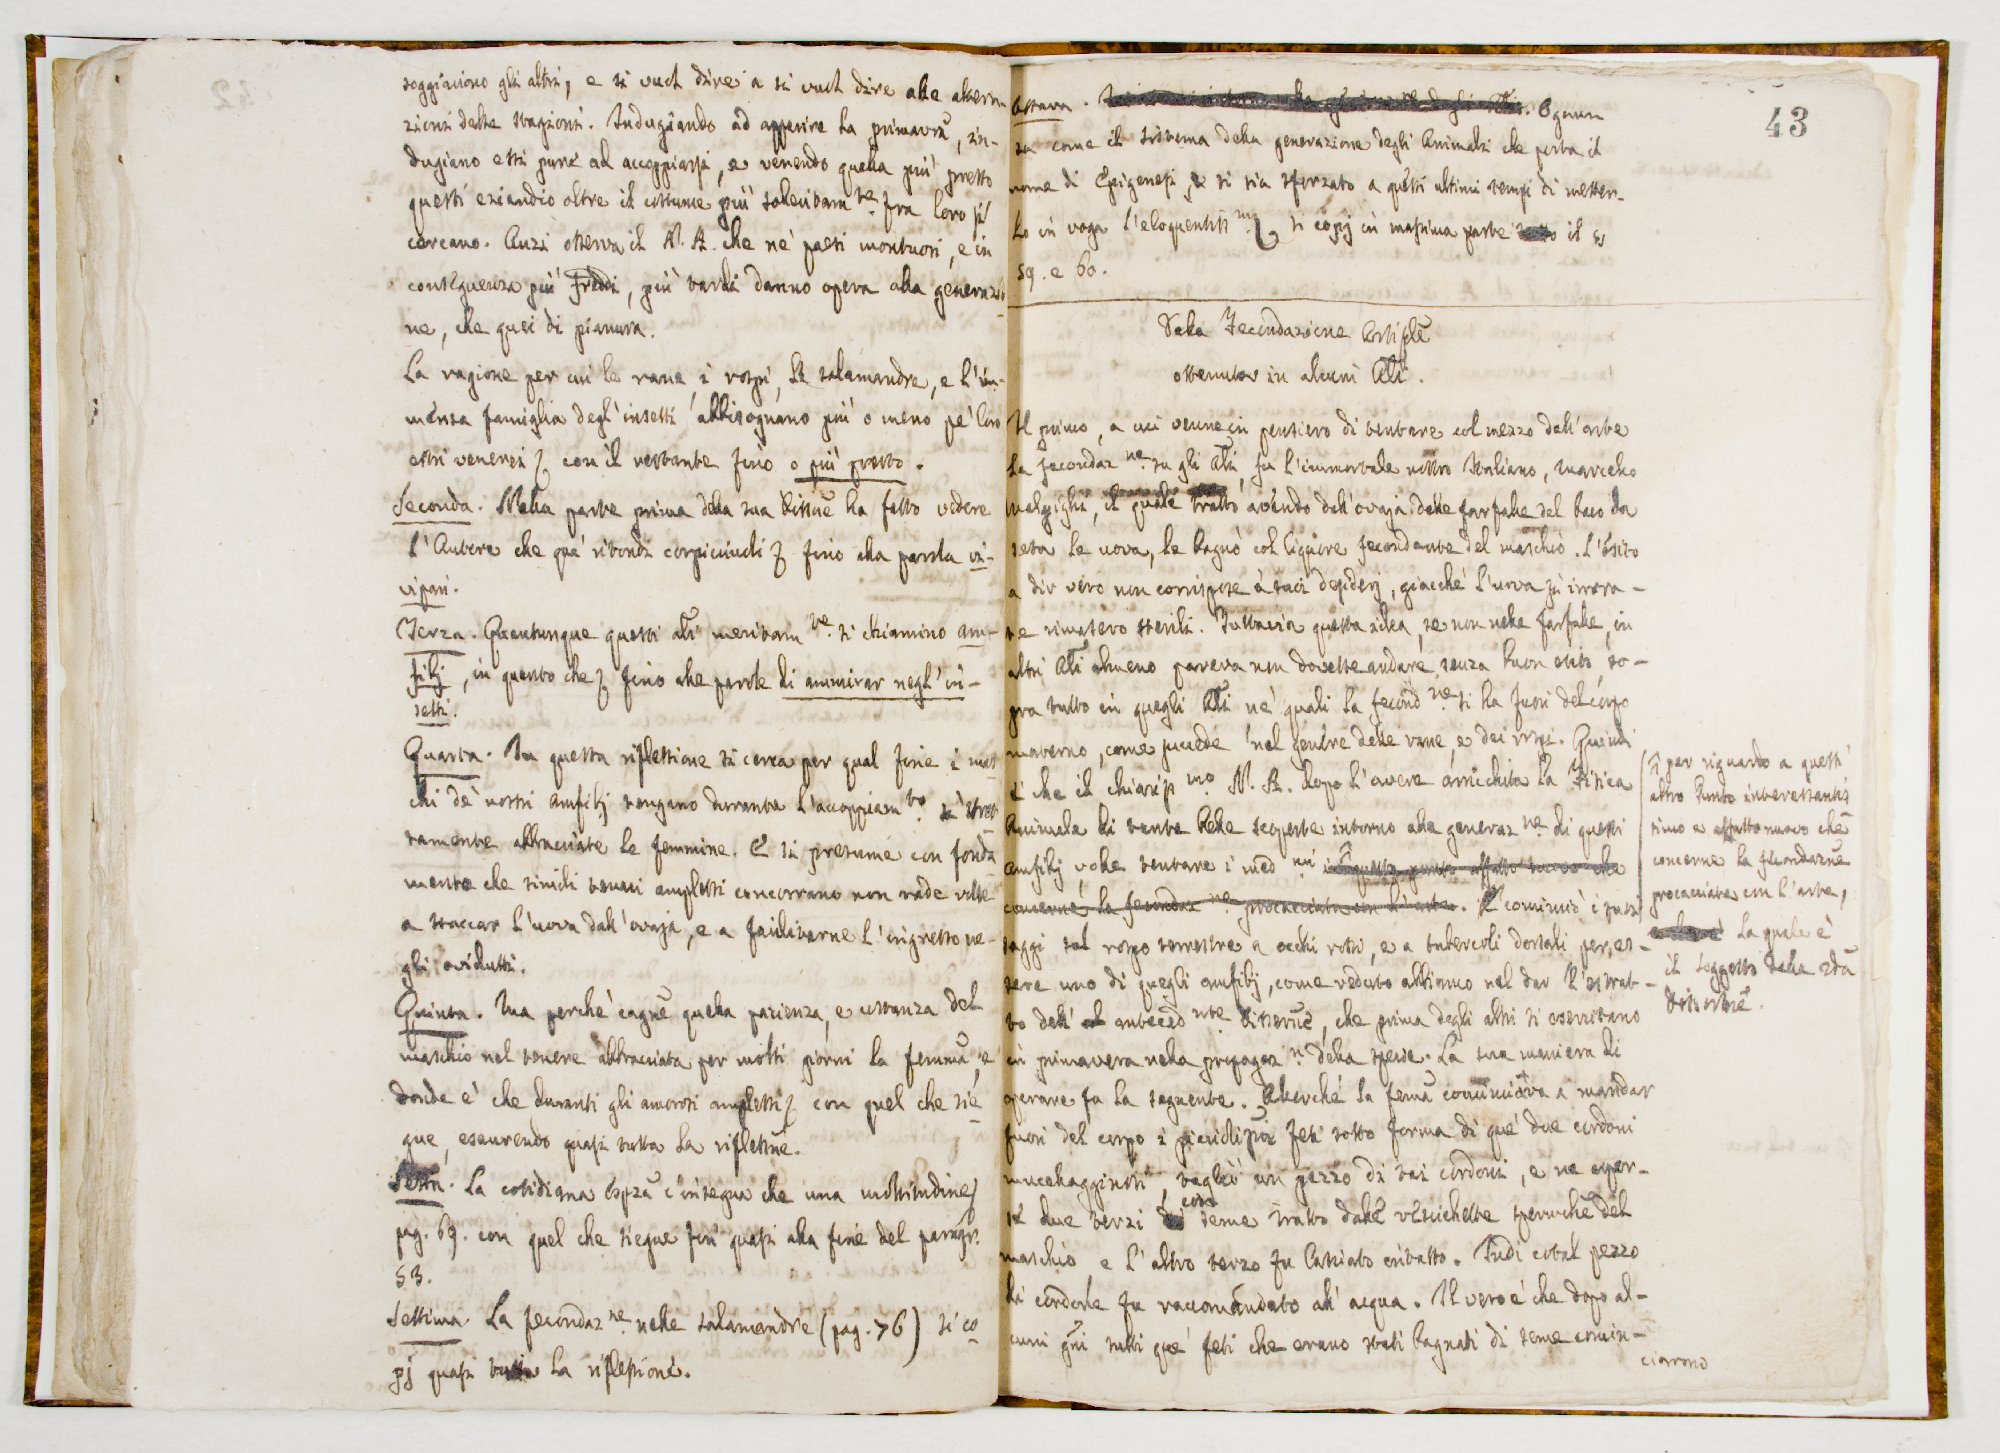 soggiaciono gli altri, e si vuol dire a si vuol dire alle altera-
zioni delle stagioni. Indugiando ad apparire la primavrã, in-
dugiano essi pure ad accoppiarsi, e venendo quella più presto
questi eziandio oltre il costume più sollecitam.te fra loro si
cercano. Anzi osserva il N. A. che ne' paesi montuosi, e in
conseguenza più freddi, più tardi danno opera alla generazio-
ne, che quei di pianura.
La ragione per cui le rane i rospi, le salamandre, e l'im-
mensa famiglia degl'insetti abbisognano più o meno pe' loro
estri venerei con il restante fino o più presto.
Seconda. Nella parte prima della sua Dissnẽ ha fatto vedere
l'Autore che que' ritondi corpicciuoli fino alla parola vi-
vipari.
Terza. Quantunque questi alĩ meritam.te si chiamino am-
fibj, in questo che fino alle parole di ammirar negl'in-
setti.
Quarta. In questa riflessione si cerca per qual fine i mas-
chi de' nostri amfibj tengano durante l'accoppiam.to sì stret-
tamente abbracciate le femmine. E si presume con fonda
mento che simili tenaci amplessi concorrano non rade volte
a staccar l'uova dall'ovaja, e a facilitarne l'ingresso ne-
gli ovidutti.
Quinta. Ma perchè cagnẽ quella pazienza, e costanza del
maschio nel tenere abbracciata per molti giorni la femmã, e
donde è che duranti gli amorosi amplessi con quel che sie
gue, esaurendo quasi tutta la riflessnẽ.
Sesta. La cotidiana espzã c'insegna che una moltitudine
pag. 69. con quel che siegue fin quasi alla fine del paragr.
53.
Settima. La fecondaz.ne nelle salamandre (pag. 76) si co
pj quasi tutta la riflessione.
42
43
Ottava. Ognun
sa come il sistema della generazione degli Animali che porta il
nome di Epigenesi, e si sia sforzato a questi ultimi tempi di metter-
lo in voga l'eloquentiss.mo si copj in massima parte il §
59. e 60.
Della Fecondazione Artifle
ottenuta in alcuni Alĩ.
Il primo, a cui venne in pensiero di tentare col mezzo dell'arte
la fecondaz.ne su gli Alĩ, fu l'immortale nostro Italiano, Marcello
Malpighi, il quale tratto avendo dall'ovaja delle farfalle del baco da
seta le uova, le bagnò col liquore fecondante del maschio. L'esito
a dir vero non corrispose a' suoi desiderj, giacchè l'uova sì irrora-
te rimasero sterili. Tuttavia questa idea, se non nelle farfalle, in
altri Alĩ almeno pareva non dovesse andare senza buon esito so-
pra tutto in quegli Alĩ ne' quali la fecond.ne si ha fuori del corpo
materno, come succede nel genere delle rane, e dei rospi. Quindi
è che il chiariss.mo N. A. dopo l'avere arricchita la Fisica
Animale di tante belle scoperte intorno alla generaz.ne di questi
amfibj, volle tentare i med.mi in questo punto affatto nuovo che
concerne la fecondaz.ne procacciata con l'arte. E cominciò i suoi
saggi sul rospo terrestre a occhi rossi, e a tubercoli dorsali per es-
sere uno di quegli amfibj, come veduto abbiamo nel dar l'estrat-
to dell' anteced.nte Dissertnẽ, che prima degli altri si esercitano
in primavera nella propagaz.n della specie. La sua maniera di
operare fu la seguente. Allorchè la femã cominciava a mandar
fuori del corpo i picciolissmi feti sotto forma di que' due cordoni
mucellagginosi, tagliò un pezzo di tai cordoni, e ne asper-
se due terzi con seme tratto dalle vescichette spermche del
maschio, e l'altro terzo fu lasciato intatto. Indi cotal pezzo
di cordone fu raccomandato all'acqua. Il vero è che dopo al-
cuni gni tutti que' feti che erano stati bagnati di seme comin-
ciarono
per riguardo a quest'
altro punto interessantis
simo e affatto nuovo che
concerne la fecondaznẽ
procacciata con l'arte,
la quale è
il soggetto della 2da
Dissertnẽ.